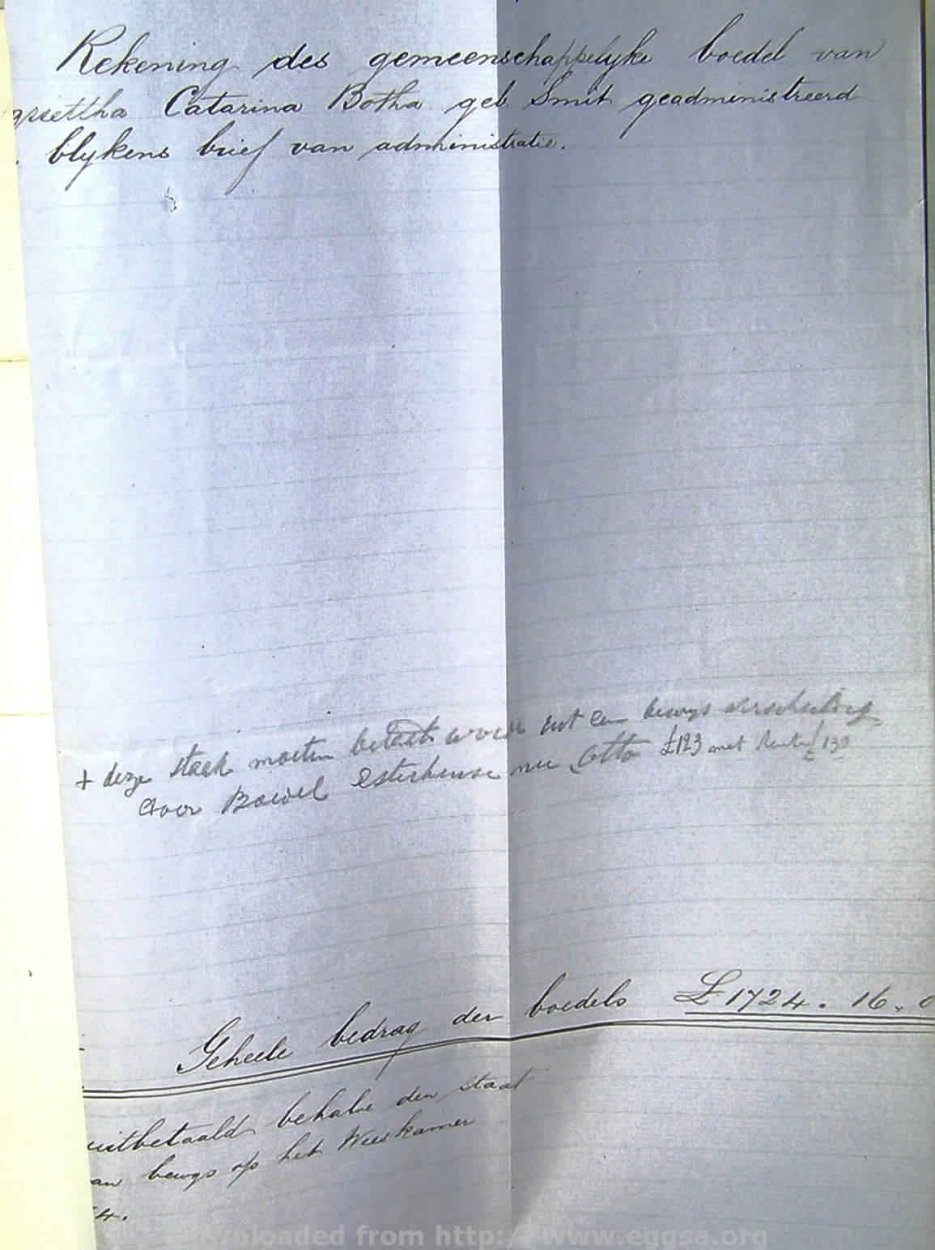 Rekening des gemeenschappelyke boedel van
Catarina Botha geb Smit geadmenistreerd
blykens brief van administratie.
+ deze moeten betaelt een bewys
Door Esterhuise nu Otto £123 met Rente £130
Geheele bedrag der boedels £1724. 16. 0
uitbetaald behalve den staat
an bewys op het Weeskamer
4.
nloaded from http://www.eggsa.org